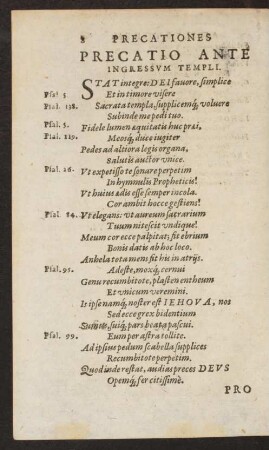 8 PRECATIONES
PRECATIO ANTE
INGRESSVM TEMPLI.
STAT integre: DEI favore, simplice
Psal. 5. Et in timore visere
Psal. 138. Sacrata templa, supplicemq́, voluere
Subinde me pedi tuo.
Psal. 5. Fidele lumen æquitatis huc præi,
Psal. 119. Meosq́, duce iugiter
Pedes ad altiora legis organa,
Salutis auctor vnice.
Psal. 26. Vt expetisso te sonare perpetim
In hymnulis Propheticis!
Vt huius ædis esse semper incola.
Cor ambit hocce gestiens!
Psal. 84. Vt elegans: vt aureum sacrarium
Tuum nitescit vndique!
Meum cor ecce palpitat; fit ebrium
Bonis datis ab hoc loco.
Anhela tota mens fit hic in atrijs.
Psal. 95. Adeste, moxq́, cernui
Genu recumbite, plasten entheum
Et vnicum veremini.
Is ipse namq́, noster est IEHOVA, nos
Sed ecce grex bidentium
Sumus, suiq́, pars beata pascui.
Psal. 99. Eum per astra tollite.
Ad ipsius pedum scabella supplices
Recumbitote perpetim.
Quod inde restat, audias preces DEVS
Opemq́, fer citissimè.
PRO